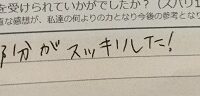 を受けられていかがでしたか？（ズバリ
直な感想が、私達の何よりの力となり今後の参考となり
部分がスッキリした!